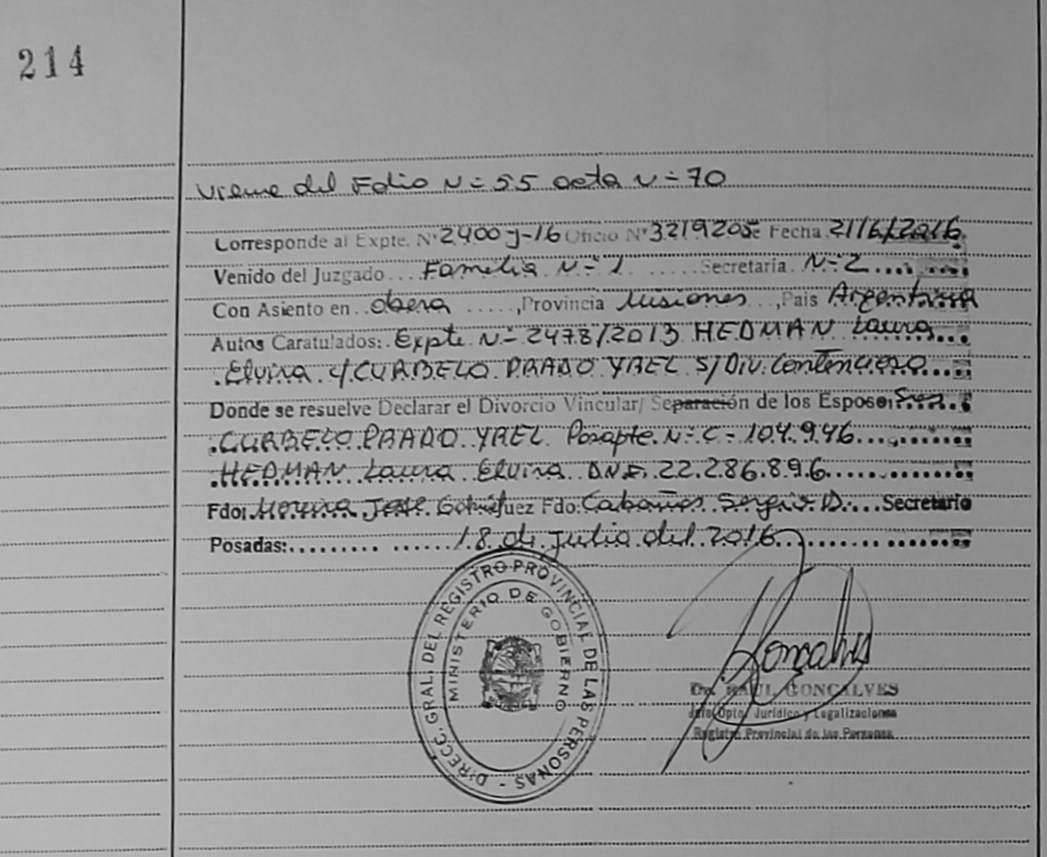 214
Viene del Folio N= 55 acta N= 70
Corresponde al Expte. N° 2400 J-16 Oficio N° 3219205 Fecha 21/6/2016
Venido del Juzgado... Familia N= 1 ...... Secretaría N= 2
Con Asiento en.. obera ....., Provincia Misiones .., País Argentina
Autos Caratulados: Expte N= 2478/2013 HEDMAN Laura
Elvira c/ CURBELO PRADO YREL S/ Div. Contencioso
Donde se resuelve Declarar el Divorcio Vincular/ Separación de los Esposos:
CURBELO PRADO YREL Pasapte. N= C= 104.946
HEDMAN Laura Elvira D.N.I. 22.286.896
Fdo: José Juez Fdo: Cabañas Sergio D. ... Secretario
Posadas:......... ...... 18 de Julio del 2016
DIRECC. GRAL. DEL REGISTRO PROVINCIAL DE LAS PERSONAS -
MINISTERIO DE GOBIERNO
Goncalves
Dr. RAUL GONCALVES
Jefe Dpto. Jurídico y Legalizaciones
Registro Provincial de las Personas